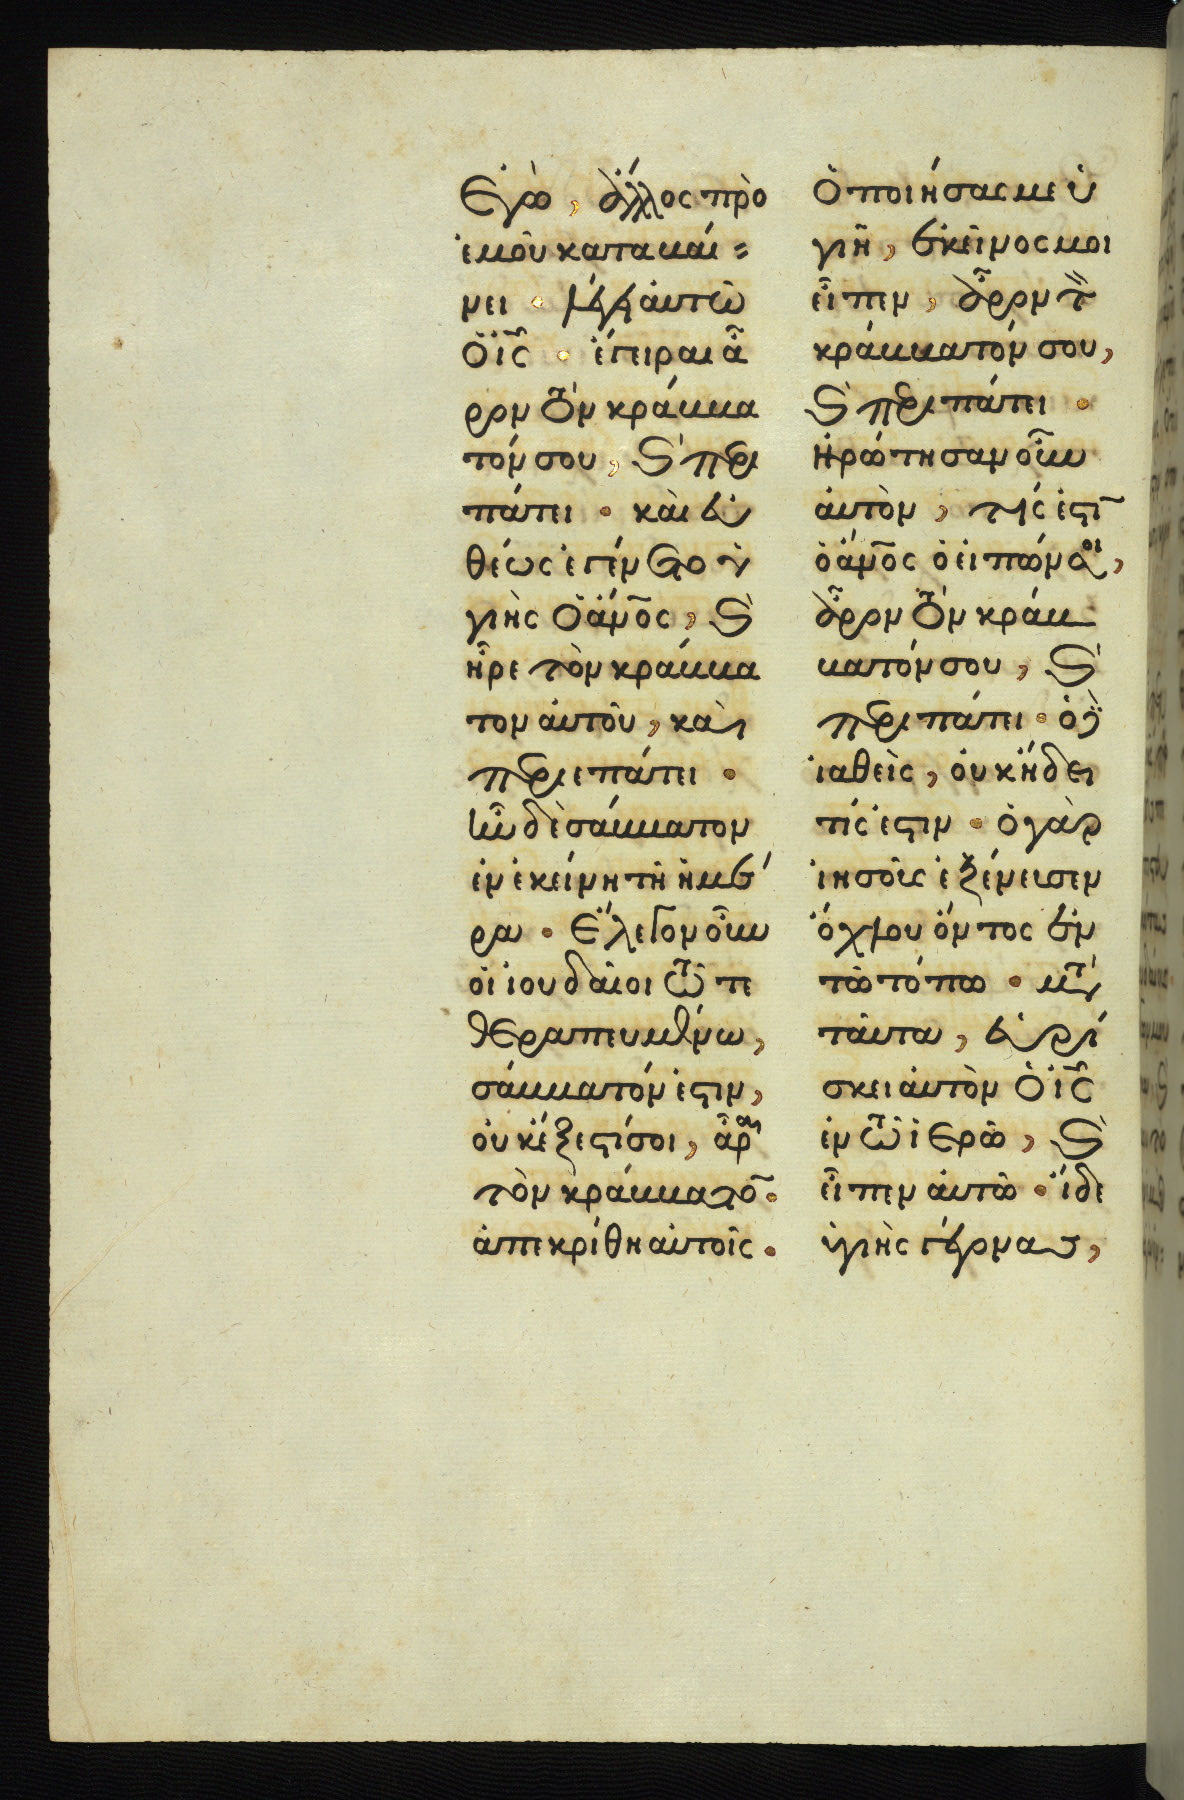 ἐγὼ, ἄλλος πρὸ
ἐμοῦ καταβαί=
νει· λέγει αὐτῶ
ὁ ἰ̅ς̅· ἔγειραι ἆ
ρον τὸν κράββα
τόν σου, ϗ περι
πάτει· καὶ εὐ
θέως ἐγένετο ὑ
γιὴς ὁ ἄν̅ο̅ς̅, ϗ
ἦρε τὸν κράββα
τον αὐτοῦ, καὶ
περιεπάτει·
ἦν δὲ σάββατον
ἐν ἐκείνη τῆ ἡμέ
ρα· ἔλεγον οὖν
οἱ ἰουδαῖοι τῶ τε
θεραπευμένω,
σάββατόν ἐστιν,
οὐκ ἔξεστί σοι, ἆραι
τὸν κράββατο̅·
ἀπεκρίθη αὐτοῖς·
ὁ ποιήσας με ὑ
γιῆ, ἐκεῖνός μοι
εἶπεν, ἆρον τὸν
κράββατόν σου,
ϗ περιπάτει·
ἠρώτησαν οὖν
αὐτὸν, τίς ἐστι̅
ὁ ἄν̅ο̅ς̅ ὁ εἰπών σοι,
ἆρον τὸν κράβ
βατόν σου, ϗ
περιπάτει· ὁ δὲ
ἰαθεὶς, οὐκ ἤδει
τίς ἐστιν· ὁ γὰρ
ἰησοῦς ἐξένευσεν
ὄχλου ὄντος ἐν
τῶ τόπω· μετὰ
ταῦτα, εὑρί
σκει αὐτὸν ὁ ἰ̅ς̅
ἐν τῶ ἱερῶ, ϗ
εἶπεν αὐτῶ· ἴδε
ὑγιὴς γέγονας,